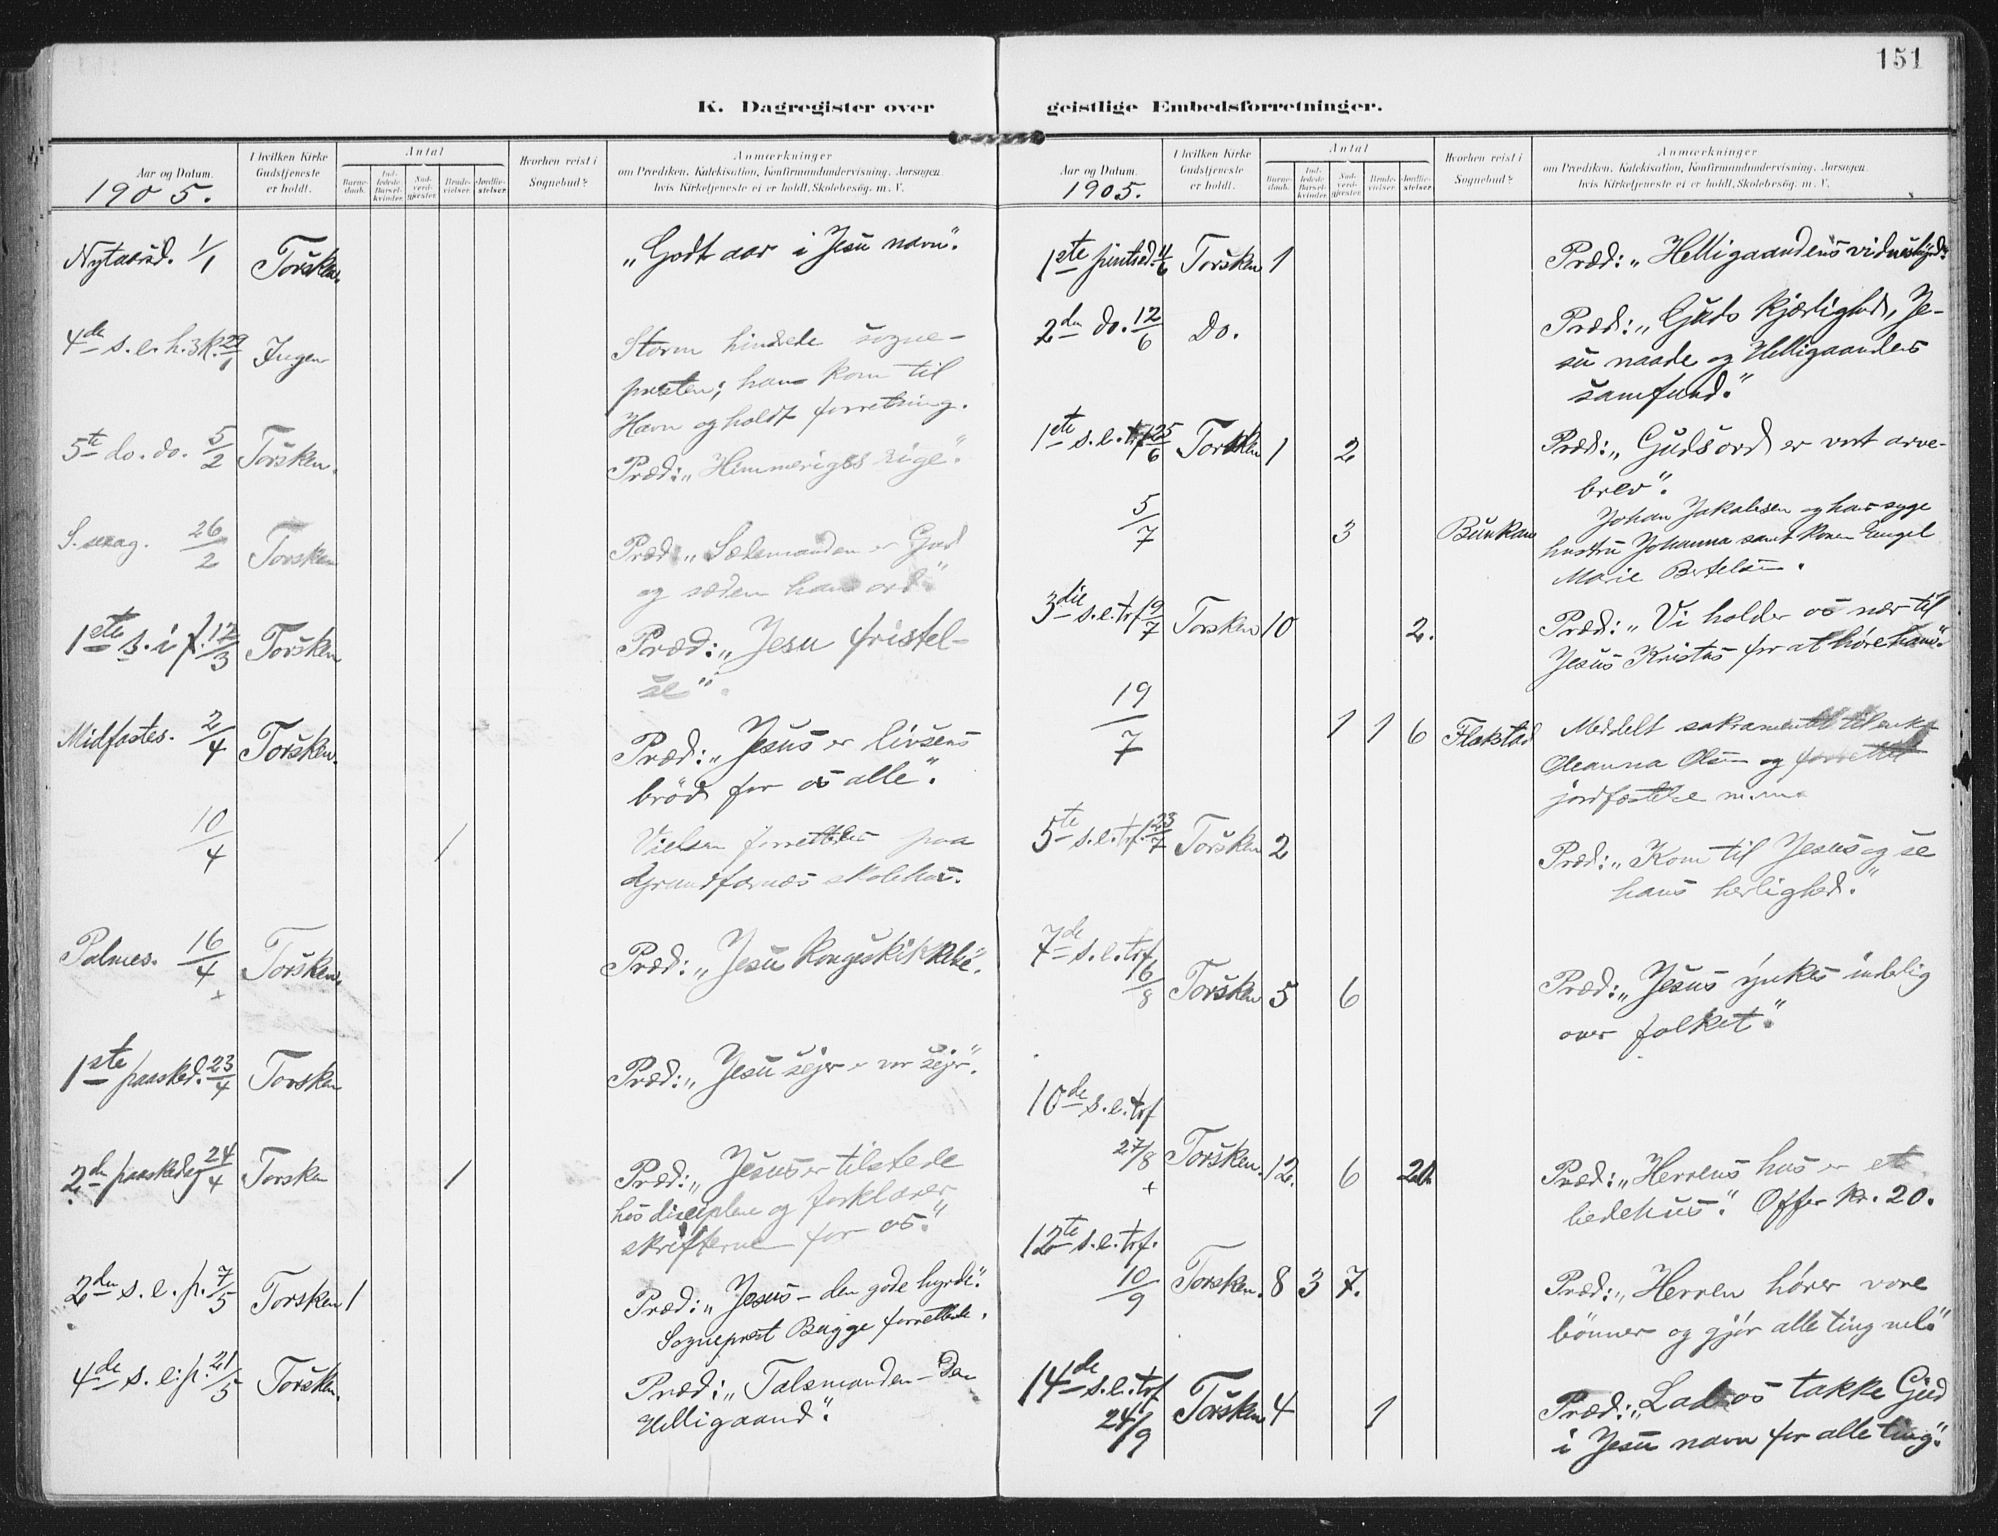 151
K. Dagregister over geistlige Embedsforretninger.
Aar og Datum.
1905.
I hvilken Kirke Gudstjeneste er holdt.
Antal
Barnedaab.
Indledede Barselkvinder.
Nadverdgjæster.
Brudevielser.
Jordfæstelser.
Hvorhen reist i Sognebud?
Anmærkninger
om Prædiken, Katekisation, Konfirmandundervisning, Aarsagen,
hvis Kirketjeneste ei er holdt, Skolebesøg m. V.
Nytaarsd. 1/1 Torsken. "Godt aar i Jesu navn".
4de s. e. h. 3 k. 29/1 Ingen Storm hindrede sogne-
presten; han kom til
Havn og holdt forretning.
5te do. do. 5/2 Torsken. Præd: "Himmeriges rige".
S. 26/2 Torsken Præd: "Sædemanden er Gud
og sæden hans ord".
1ste s. i f. 12/3 Torsken Præd: "Jesu fristel-
se".
Midfastes. 2/4 Torsken. Præd: "Jesus er livsens
brød for os alle".
10/4 1 Vielsen forrettedes paa
Grundfarnes skolehus.
Palmes. 16/4 Torsken. Præd: "Jesu kongeskikkelse".
+
1ste paasked. 23/4 Torsken Præd: "Jesu sejer er vor sejr".
2den paaskedag 24/4 Torsken 1 Præd: "Jesus er tilstede
hos disciplene og forklarer
skrifterne for os."
2den s. e. p. 7/5 Torsken 1 Præd: "Jesus – den gode hyrde".
Sogneprest Bugge forrettede.
4de s. e. p. 21/5 Torsken. Præd: "Talsmanden – Den
Helligaand".
Aar og Datum.
1905.
I hvilken Kirke Gudstjeneste er holdt.
Antal
Barnedaab.
Indledede Barselkvinder.
Nadverdgjæster.
Brudevielser.
Jordfæstelser.
Hvorhen reist i Sognebud?
Anmærkninger
om Prædiken, Katekisation, Konfirmandundervisning, Aarsagen,
hvis Kirketjeneste ei er holdt, Skolebesøg m. V.
1ste pintsed. 11/6 Torsken 1 Præd: "Helligaandens vidnesbyrd".
2den do. 12/6 Do. Præd: "Guds kjærlighed, Je-
su naade og Helligaandens
samfund."
1ste s. e. trf 25/6 Torsken 1 2 Præd: "Guds ord er vort arve-
brev".
5/7 3 Bunkan Johan Jakobsen og hans syge
hustru Johanna samt konen Engel
Marie Bertelsen.
3die s. e. trf 9/7 Torsken 10 2. Præd: "Vi holder os nær til
Jesus Kristus for at høre ham".
19/7 1 1 6 Flakstad Meddelt sakramentet til enke
Oleanna Olsen og forrettet
jordfæstelse m. m.
5te s. e. trf. 23/7 Torsken 2 Præd: "Kom til Jesus og se
hans herlighed."
7de s. e. trf
16/8 Torsken 5 6 Præd: "Jesus ynkes inderlig
over folket".
10de s. e. trf
27/8 Torsken. 12. 6 20. Præd: "Herrens hus er et
bedehus". Offer kr. 20.
+
12te s. e. trf.
10/9 Torsken. 8 3 7. Præd: "Herren hører vore
bønner og gjør alle ting vel".
14de s. e. trf
24/9 Torsken 4 1 Præd: "Lad os takke Gud
i Jesu navn for alle ting".